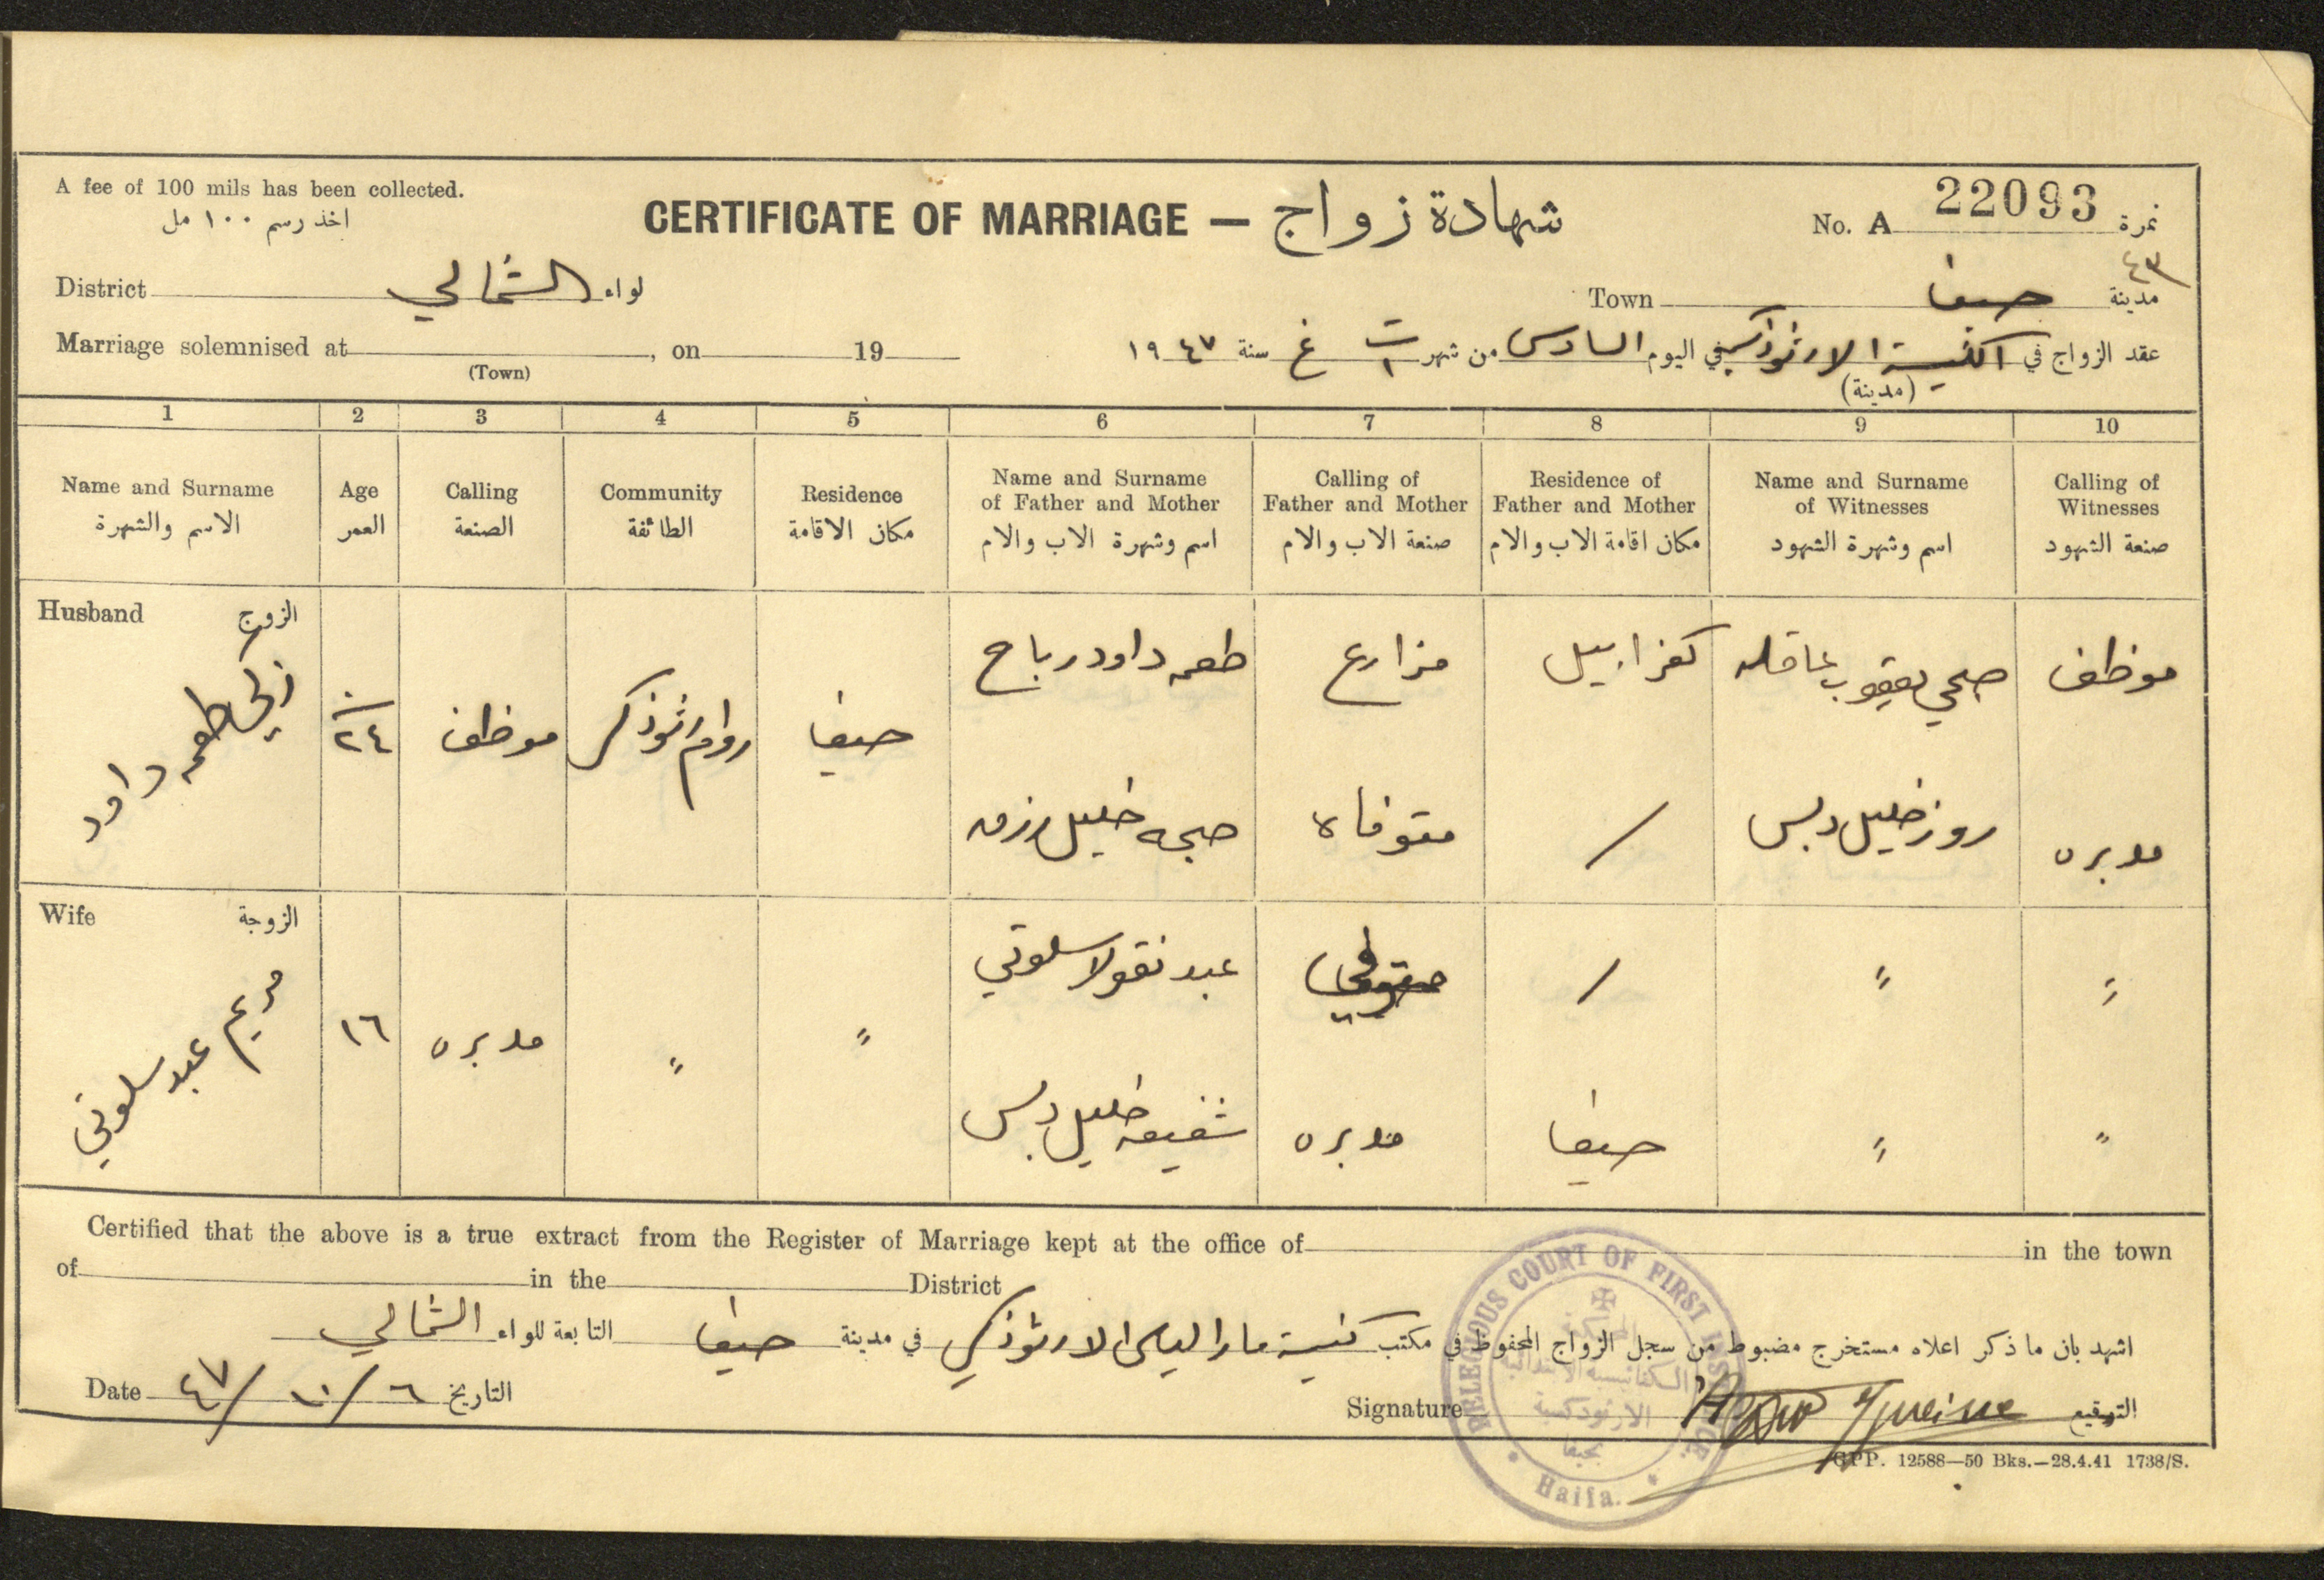 A fee of 100 mils has been collected.
اخذ رسم ١٠٠ مل
CERTIFICATE OF MARRIAGE — شهادة زواج
No. A 22093 نمرة
٤٣
District الشمالي لواء
Town حيفا مدينة
Marriage solemnised at , on 19
(Town)
عقد الزواج في الكنيسة الارثوذكسية في اليوم السادس من شهر ت ١ غ سنة ١٩٤٧
(مدينة)
1 2 3 4 5 6 7 8 9 10
Name and Surname الاسم والشهرة
Age العمر
Calling الصنعة
Community الطائفة
Residence مكان الاقامة
Name and Surname of Father and Mother اسم وشهرة الاب والام
Calling of Father and Mother صنعة الاب والام
Residence of Father and Mother مكان اقامة الاب والام
Name and Surname of Witnesses اسم وشهرة الشهود
Calling of Witnesses صنعة الشهود
Husband الزوج
طعمه داود
٢٤
موظف
روم ارثوذكس
حيفا
طعمه داود رباح
مزارع
صبحي يعقوب عاقله
موظف
خليل
متوفاه
/
روز خليل دبس
مدبره
Wife الزوجة
مريم عبد سلوتي
١٦
مدبره
"
"
عبد نقولا سلوتي
متوفي
/
"
"
شفيقه خليل دبس
مدبره
حيفا
"
"
Certified that the above is a true extract from the Register of Marriage kept at the office of in the town
of in the District
اشهد بان ما ذكر اعلاه مستخرج مضبوط من سجل الزواج المحفوظ في مكتب كنيسة مار الياس الارثوذكس في مدينة حيفا التابعة للواء الشمالي
Date ٤٧/١٠/٦ التاريخ
Signature التوقيع
RELEGIOUS COURT OF FIRST
المحكمة
الكنائسية الابتدائية
الارثوذكسية
بحيفا
Haifa.
GPP. 12588—50 Bks.—28.4.41 1738/S.